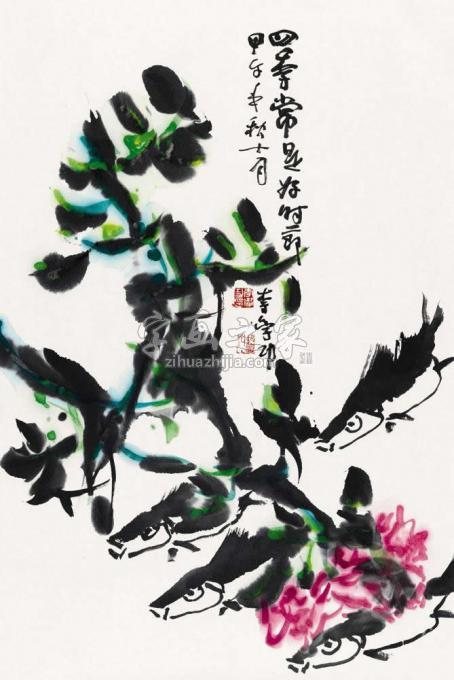 四季常是好时节
甲午年秋十月
字画之家
zihuazhijia.com